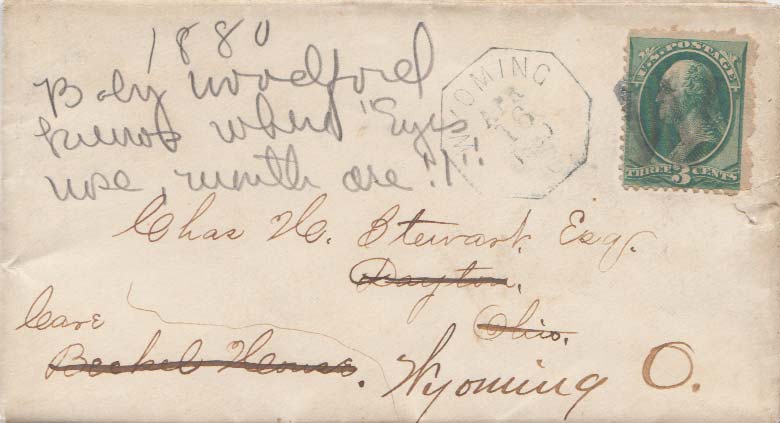 1880
Baby Woodford
knows where "Eyes
nose, mouth are"!"
WYOMING
APR
16
U.S. POSTAGE
THREE 3 CENTS
Chas H. Stewart Esq.
Dayton,
Ohio.
Care
Beckel House.
Wyoming O.